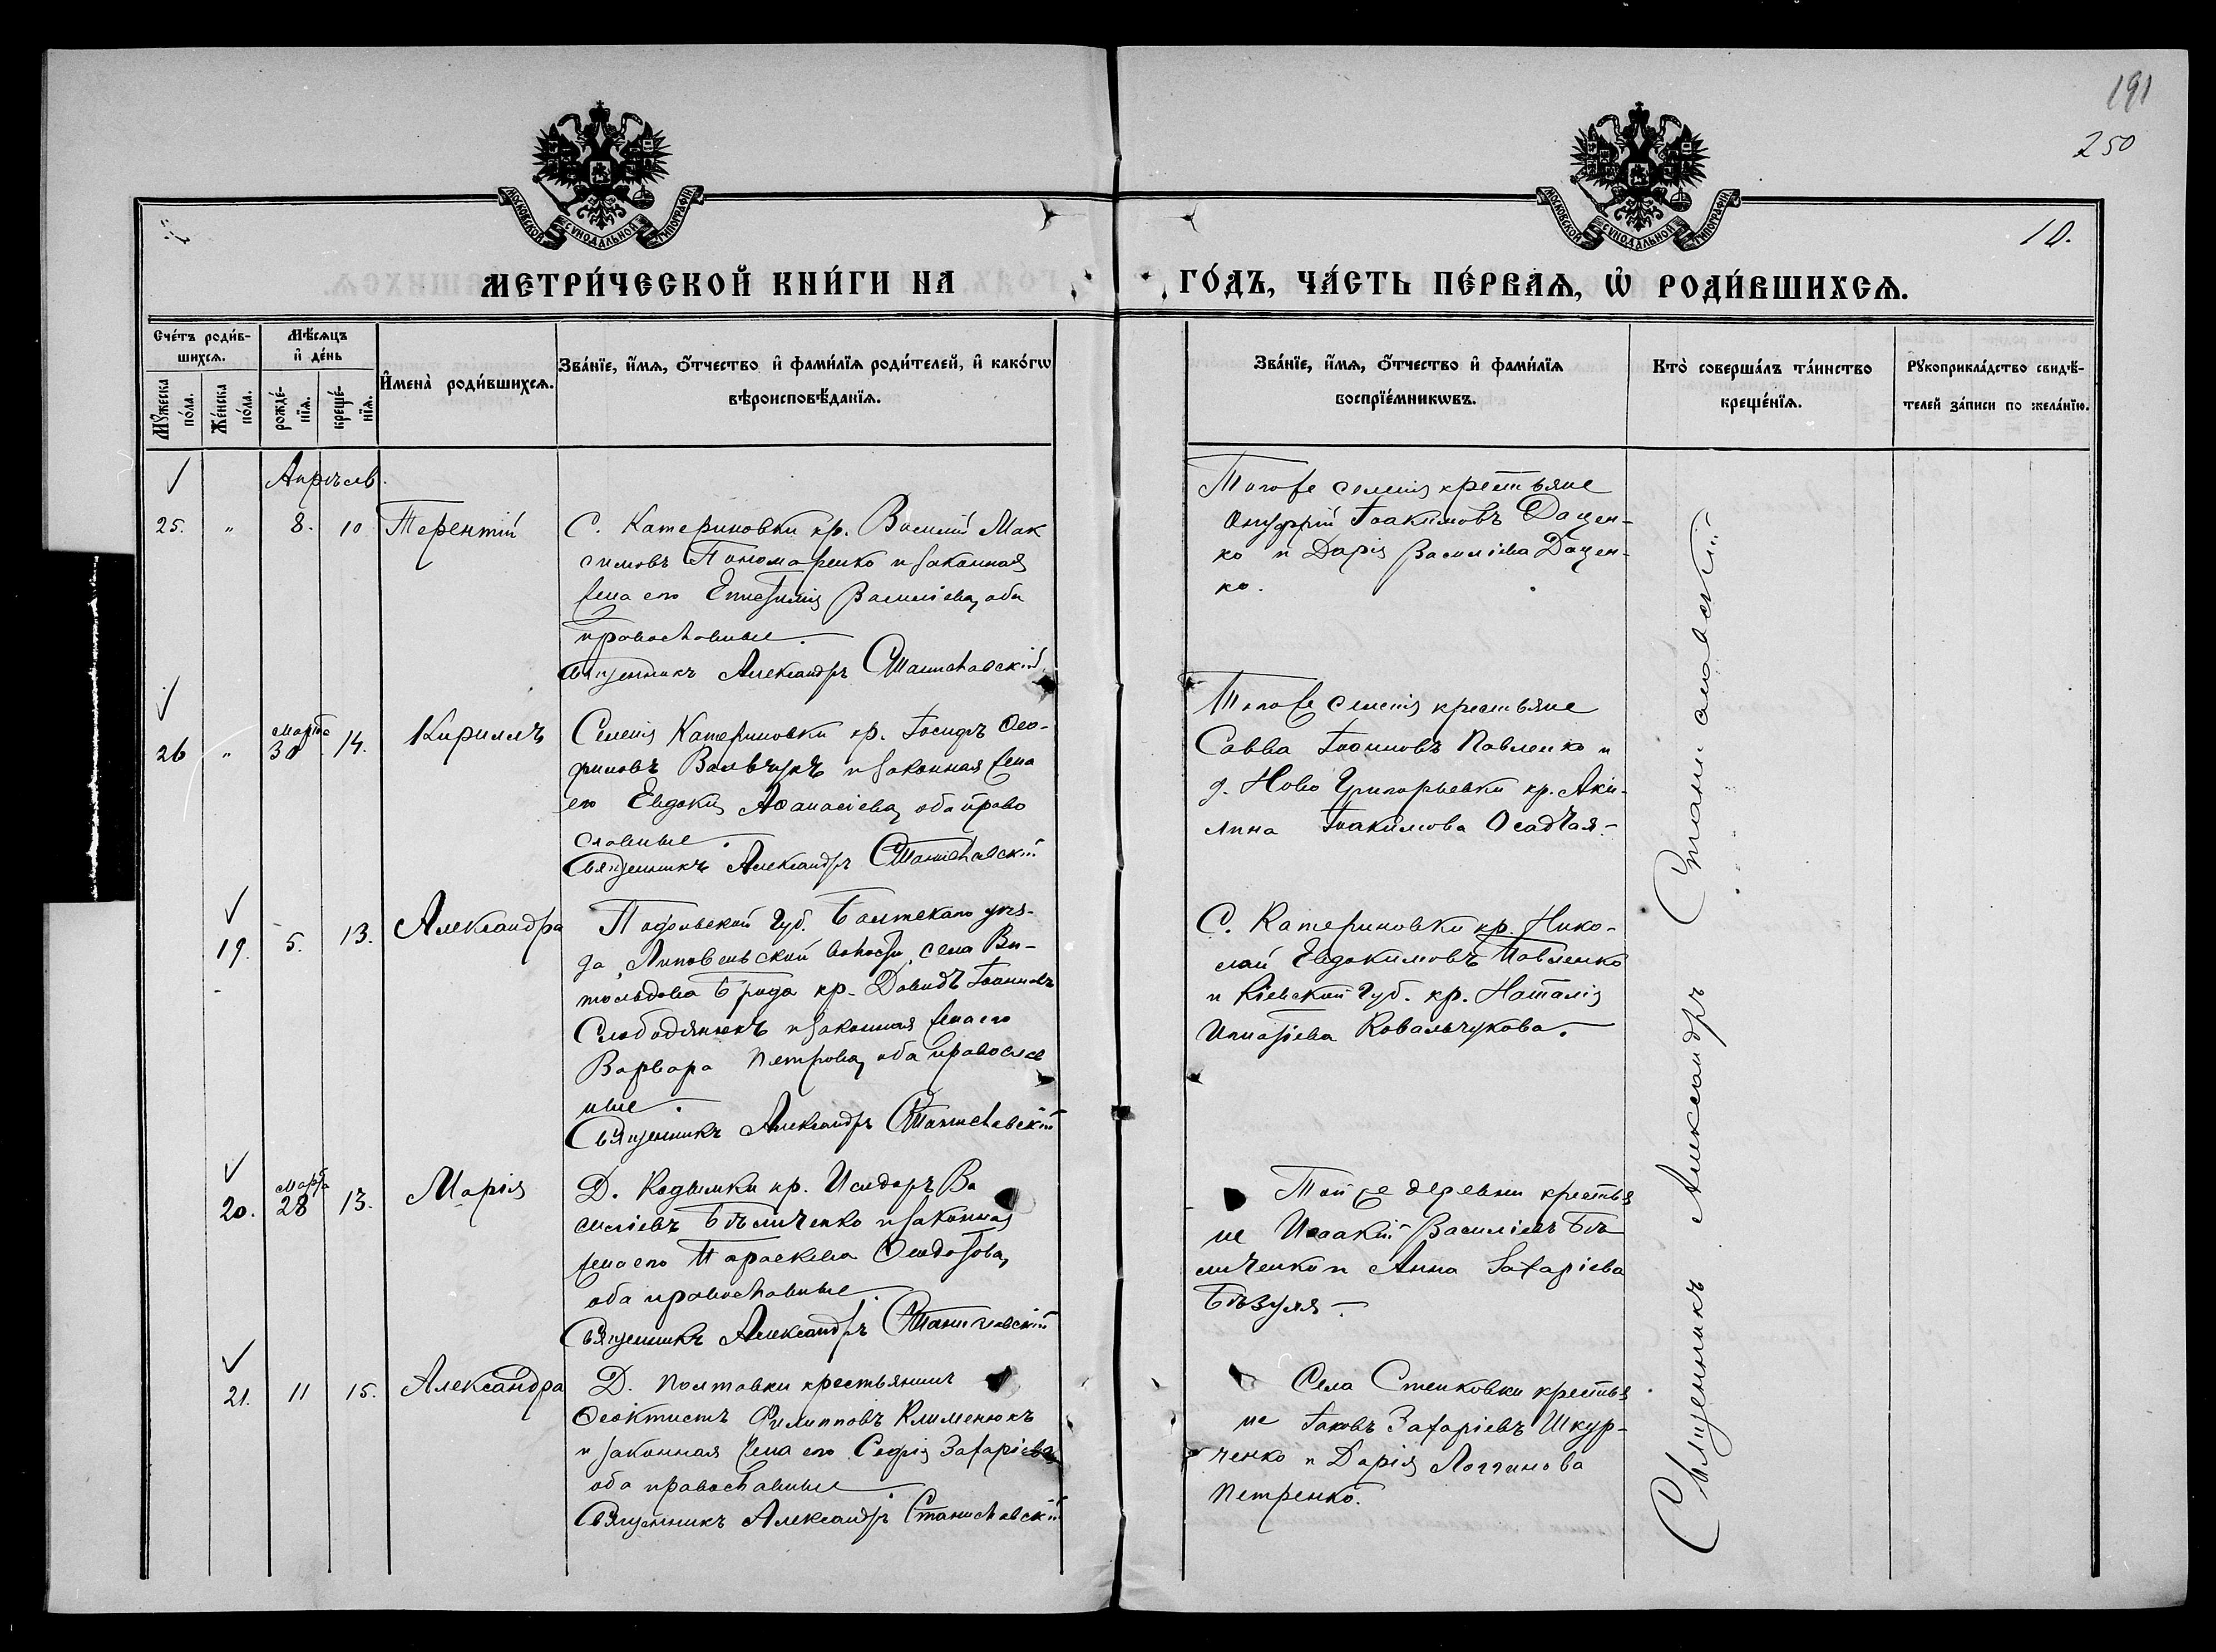 191
250
10.
МОСКОВСКОЙ СѴНОДАЛЬНОЙ ТИПОГРАФІИ
МОСКОВСКОЙ СѴНОДАЛЬНОЙ ТИПОГРАФІИ
МЕТРИ́ЧЕСКОЙ КНИ́ГИ НА
ГО́ДЪ, ЧА́СТЬ ПЕ́РВАѦ, Ѡ҆ РОДИ́ВШИХСѦ.
Сче́тъ роди́в-
шихсѧ.
Мꙋ́жеска
по́ла.
Же́нска
по́ла.
Мѣ́сѧцъ
и҆ де́нь
рожде́-
нїѧ.
креще́-
нїѧ.
И҆мена̀ роди́вшихсѧ.
Зва́нїе, и҆́мѧ, ѻ҆́тчество и҆ фами́лїѧ роди́телей, и҆ како́гѡ
вѣроисповѣ́данїѧ.
Зва́нїе, и҆́мѧ, ѻ҆́тчество и҆ фами́лїѧ
воспрїе́мникѡвъ.
Кто̀ соверша́лъ та́инство
креще́нїѧ.
Рꙋкоприкла́дство свидѣ́-
телей за́писи по жела́нїю.
Апрѣль
25. " 8. 10 Терентій
С. Катериновки кр. Василій Мак
симовъ Пономаренко и законная
жена его Епистимія Василіева, оба
православные.
Священникъ Александръ Станиславскій
Тогоже селенія крестьяне
Онуфрій Іоакимовъ Дацен-
ко и Дарія Василіева Дацен-
ко.
26 " Марта 30 14. Кириллъ
Селенія Катериновки кр. Іосифъ Ѳео-
филовъ Вальчукъ и законная жена
его Евдокія Аѳанасіева, оба право
славные.
Священникъ Александръ Станиславскій
Тогоже селенія крестьяне
Савва Іоанновъ Павленко и
д. Ново Григорьевки кр. Аки-
лина Іоакимова Осадчая.
19. 5. 13. Александра
Подольской Губ. Балтскаго уѣз-
да, волости, села Ви-
тольдова Брода кр. Давидъ Іоанновъ
Слободянюкъ и законная жена его
Варвара Петрова, оба православ
ные.
Священникъ Александръ Станиславскій
С. Катериновки кр. Нико-
лай Евдокимовъ Павленко
и Кіевской Губ. кр. Наталія
Игнатіева Ковальчукова.
20. Марта 28 13. Марія
Д. Кодымки кр. Исидоръ Ва
силіевъ Бѣличенко и законная
жена его Параскева Ѳеодотова,
оба православные.
Священникъ Александръ Станиславскій
Той же деревни крестья
не Исаакій Василіевъ Бѣ
личенко и Анна Захаріева
Бѣзуля.
21. 11 15. Александра
Д. Полтавки крестьянинъ
Ѳеоктистъ Филипповъ Клименюкъ
и законная жена его Софія Захаріева
оба православные
Священникъ Александръ Станиславскій
Села Стенковки крестья
не Іаковъ Захаріевъ Шкур-
ченко и Дарія Логгинова
Петренко.
Священникъ Александръ Станиславскій